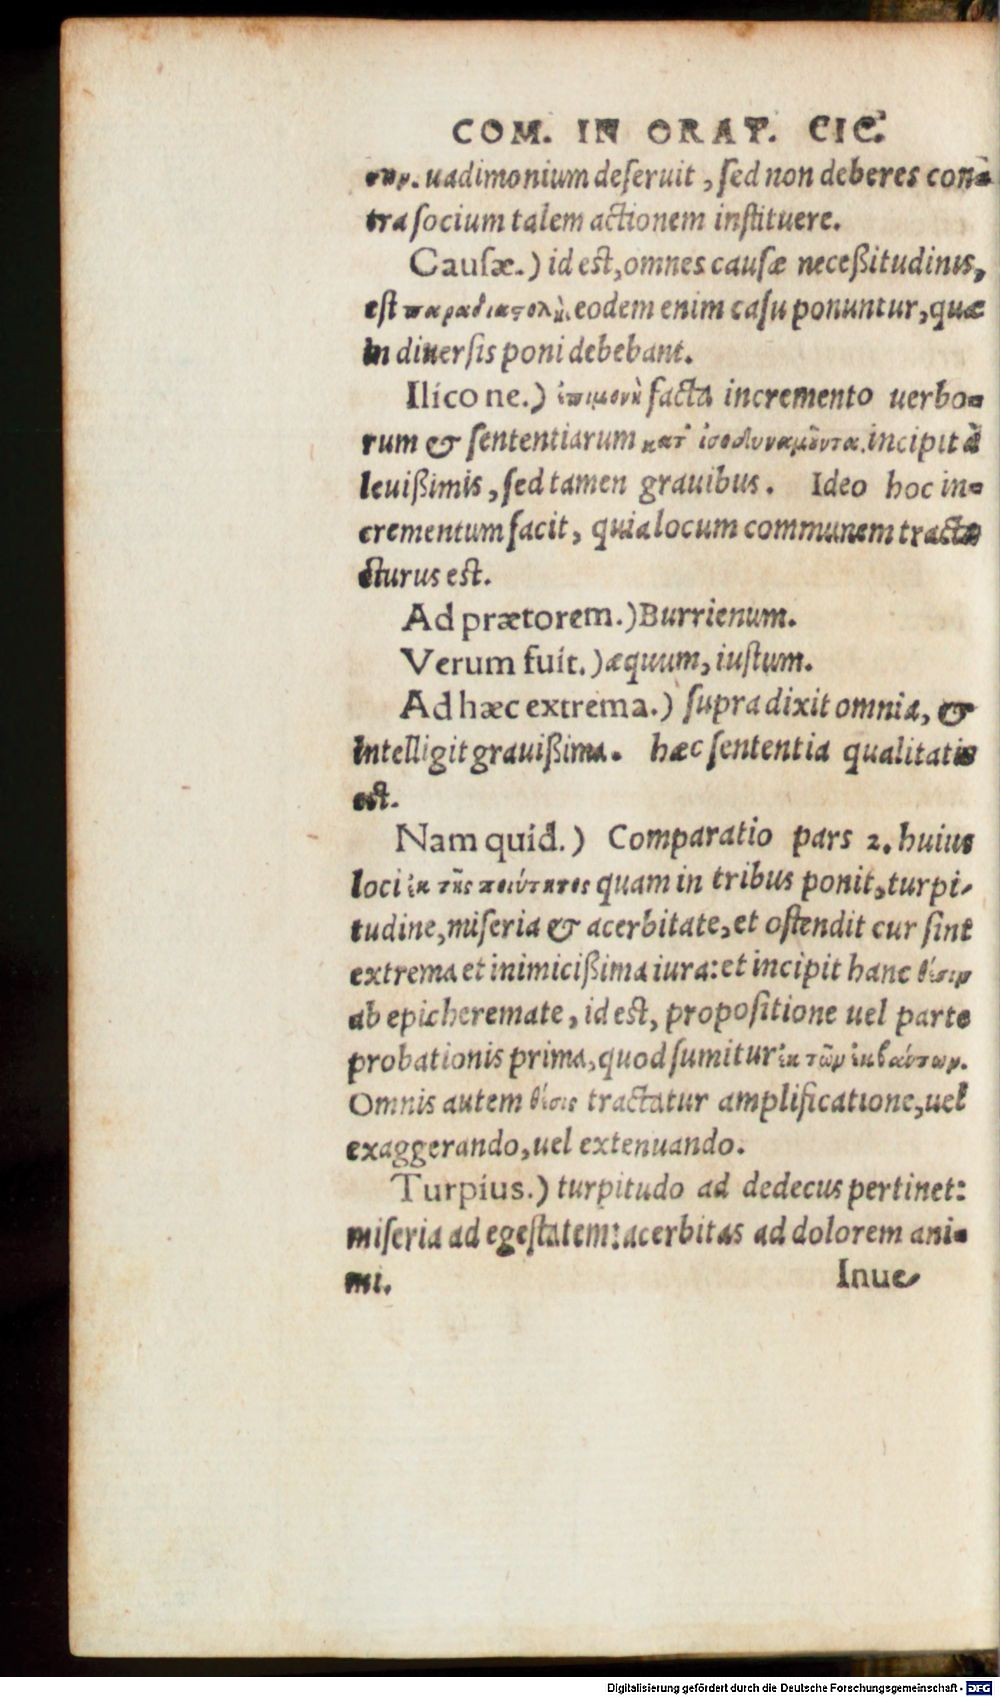 COM. IN ORAT. CIC.
uadimonium deſeruit, ſed non deberes con=
tra ſocium talem actionem inſtituere.
Cauſæ.) id eſt, omnes cauſæ neceßitudinis,
eſt παραδιαϛολὴ. eodem enim caſu ponuntur, quæ
in diuerſis poni debebant.
Ilico ne.) ἐπιμονὴ facta incremento uerbo=
rum & ſententiarum κατ' ἰσοδυναμοῦντα. incipit à
leuißimis, ſed tamen grauibus. Ideo hoc in=
crementum facit, quia locum communem tracta
cturus eſt.
Ad prætorem.) Burrienum.
Verum fuit.) æquum, iuſtum.
Ad hæc extrema.) ſupra dixit omnia, &
intelligit grauißima. hæc ſententia qualitatis
eſt.
Nam quid.) Comparatio pars 2. huius
loci ἐκ τῆς ποιότητος quam in tribus ponit, turpi-
tudine, miſeria & acerbitate, et oſtendit cur ſint
extrema et inimicißima iura: et incipit hanc θέσιν
ab epicheremate, id eſt, propoſitione uel parte
probationis prima, quod ſumitur ἐκ τῶν ἐκβαύτων.
Omnis autem θέσις tractatur amplificatione, uel
exaggerando, uel extenuando.
Turpius.) turpitudo ad dedecus pertinet:
miſeria ad egeſtatem: acerbitas ad dolorem ani=
mi.
Inue-
Digitalisierung gefördert durch die Deutsche Forschungsgemeinschaft - DFG